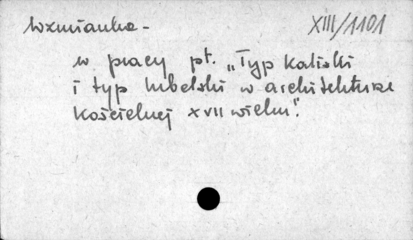 Wzmianka - XIII/1101
w pracy pt. „Typ kaliski
i typ lubelski w architekturze
kościelnej XVII wieku".